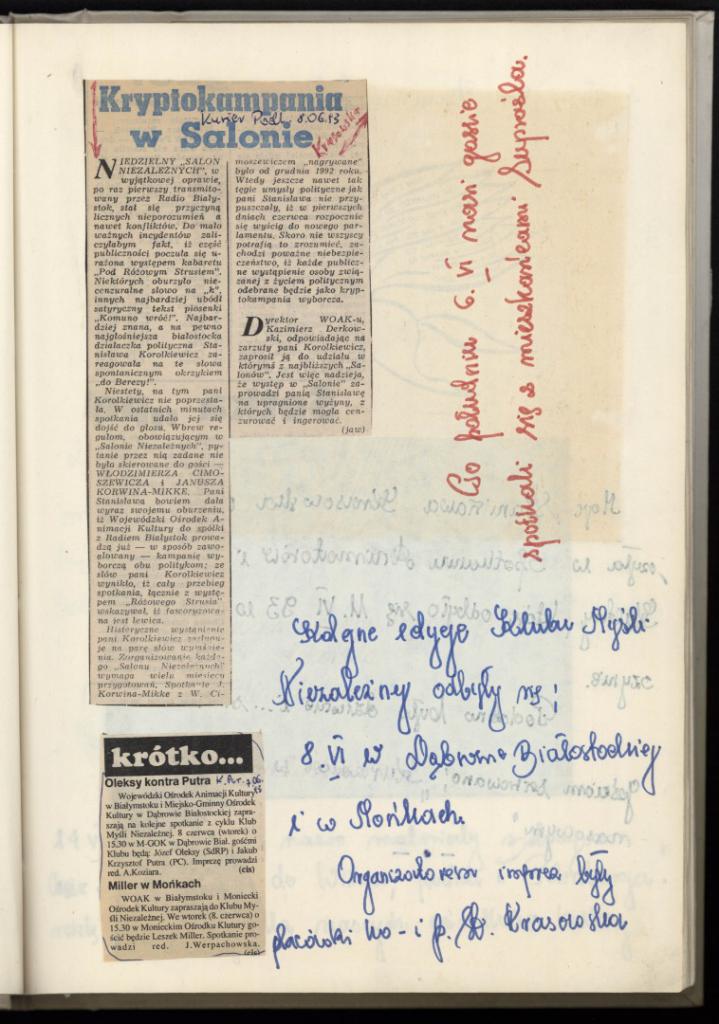 Kryptokampania
w Salonie
Kurier Podl. 8.06.93
Krasowska
NIEDZIELNY „SALON
NIEZALEŻNYCH”, w
wyjątkowej oprawie,
po raz pierwszy transmito-
wany przez Radio Biały-
stok, stał się przyczyną
licznych nieporozumień a
nawet konfliktów. Do mało
ważnych incydentów zali-
czyłabym fakt, iż część
publiczności poczuła się u-
rażona występem kabaretu
„Pod Różowym Strusiem”.
Niektórych oburzyło nie-
cenzuralne słowo na „k”,
innych najbardziej ubódł
satyryczny tekst piosenki
„Komuno wróć!”. Najbar-
dziej znana, a na pewno
najgłośniejsza białostocka
działaczka polityczna Sta-
nisława Korolkiewicz za-
reagowała na te słowa
spontanicznym okrzykiem
„do Berezy!”.
Niestety, na tym pani
Korolkiewicz nie poprzesta-
ła. W ostatnich minutach
spotkania udało jej się
dojść do głosu. Wbrew re-
gułom, obowiązującym w
„Salonie Niezależnych”, py-
tanie przez nią zadane nie
było skierowane do gości —
WŁODZIMIERZA CIMO-
SZEWICZA i JANUSZA
KORWINA-MIKKE. Pani
Stanisława bowiem dała
wyraz swojemu oburzeniu,
iż Wojewódzki Ośrodek A-
nimacji Kultury do spółki
z Radiem Białystok prowa-
dzą już — w sposób zawo-
alowany — kampanię wy-
borczą obu politykom; ze
słów pani Korolkiewicz
wynikło, iż cały przebieg
spotkania, łącznie z wystę-
pem „Różowego Strusia”
wskazywał, iż faworyzowa-
na jest lewica.
Histeryczne wystąpienie
pani Korolkiewicz zasługu-
je na parę słów wyjaśnie-
nia. Zorganizowanie każde-
go „Salonu Niezależnych”
wymaga wielu miesięcy
przygotowań. Spotkanie J.
Korwina-Mikke z W. Ci-
moszewiczem „nagrywane”
było od grudnia 1992 roku.
Wtedy jeszcze nawet tak
tęgie umysły polityczne jak
pani Stanisława nie przy-
puszczały, iż w pierwszych
dniach czerwca rozpocznie
się wyścig do nowego par-
lamentu. Skoro nie wszyscy
potrafią to zrozumieć, za-
chodzi poważne niebezpie-
czeństwo, iż każde publicz-
ne wystąpienie osoby zwią-
zanej z życiem politycznym
odebrane będzie jako kryp-
tokampania wyborcza.
Dyrektor WOAK-u,
Kazimierz Derkow-
ski, odpowiadając na
zarzuty pani Korolkiewicz,
zaprosił ją do udziału w
którymś z najbliższych „Sa-
lonów”. Jest więc nadzieja,
że występ w „Salonie” za-
prowadzi panią Stanisławę
na upragnione wyżyny, z
których będzie mogła cen-
zurować i ingerować.
(jaw)
Po południu 6. VI nasi goście
spotkali się z mieszkańcami Supraśla.
Kolejne edycje Klubu Myśli
Niezależnej odbyły się:
8 VI w Dąbrowie Białostockiej
i w Mońkach.
Organizatorem imprez były
placówki ko- i p. D. Krasowska
krótko...
Oleksy kontra Putra
Wojewódzki Ośrodek Animacji Kultury
w Białymstoku i Miejsko-Gminny Ośrodek
Kultury w Dąbrowie Białostockiej zapra-
szają na kolejne spotkanie z cyklu Klub
Myśli Niezależnej. 8 czerwca (wtorek) o
15.30 w M-GOK w Dąbrowie Biał. gośćmi
Klubu będą: Józef Oleksy (SdRP) i Jakub
Krzysztof Putra (PC). Imprezę prowadzi
red. A.Koziara. (cis)
Miller w Mońkach
WOAK w Białymstoku i Moniecki
Ośrodek Kultury zapraszają do Klubu My-
śli Niezależnej. We wtorek (8. czerwca) o
15.30 w Monieckim Ośrodku Klutury go-
ścić będzie Leszek Miller. Spotkanie pro-
wadzi red. J.Werpachowska.
(cis)